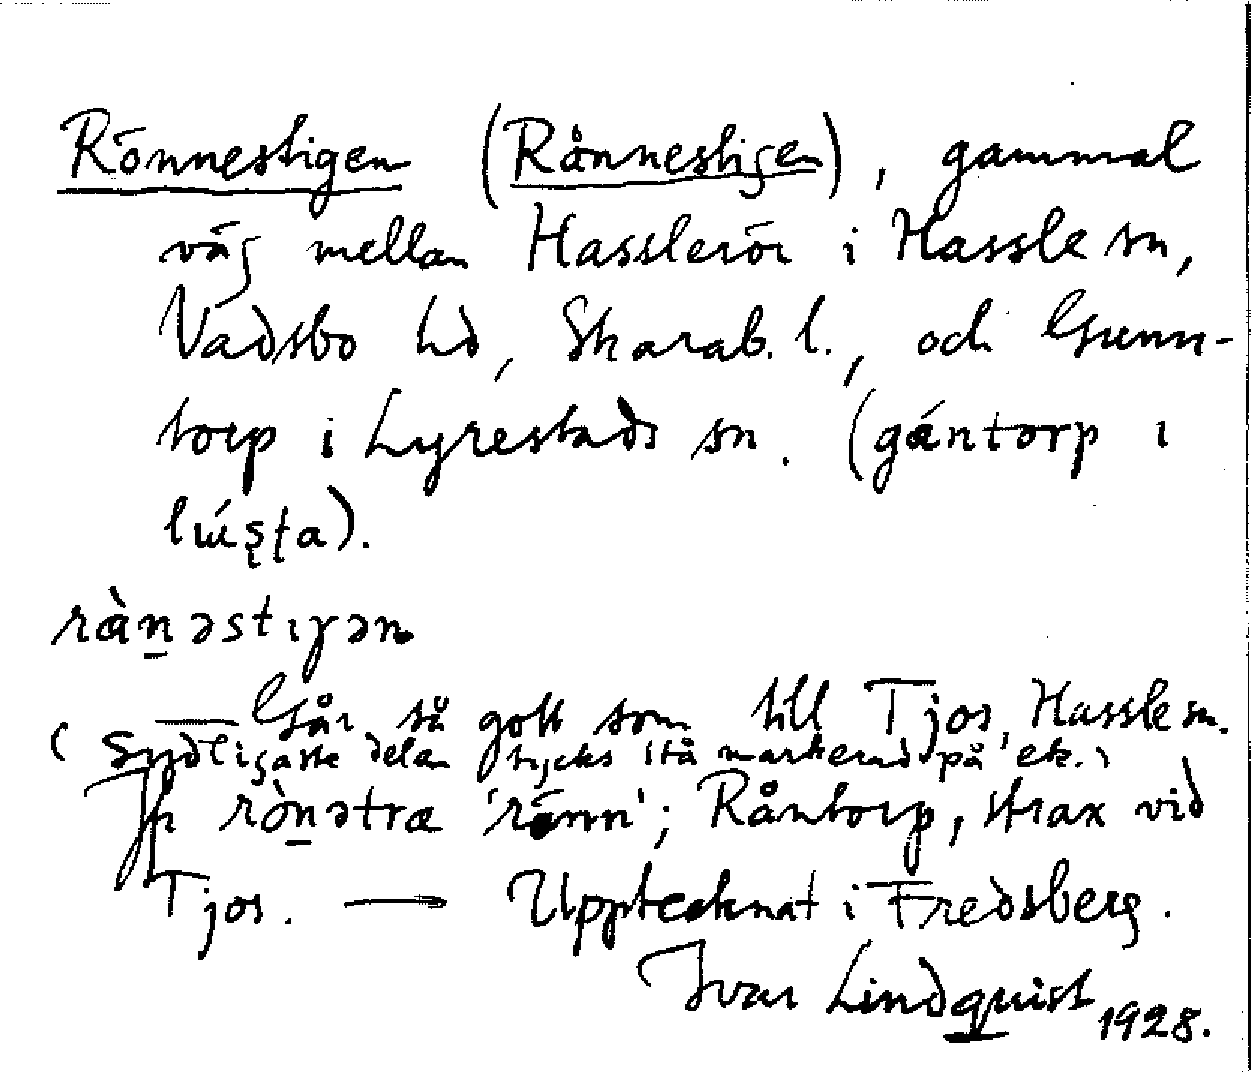 Rönnestigen (Rånnestigen), gammal
väg mellan Hasslerör i Hassle sn,
Vadsbo hd, Skarab. l., och Gunn-
torp i Lyrestads sn. (gántorp i
lústa).
rànəstıgən
Går så gott som till Tjos, Hassle sn.
(Sydligaste delen tycks stå markerad på ek.)
Jfr rònətræ 'rönn'; Råntorp, strax vid
Tjos. — Upptecknat i Fredsberg.
Ivar Lindquist 1928.